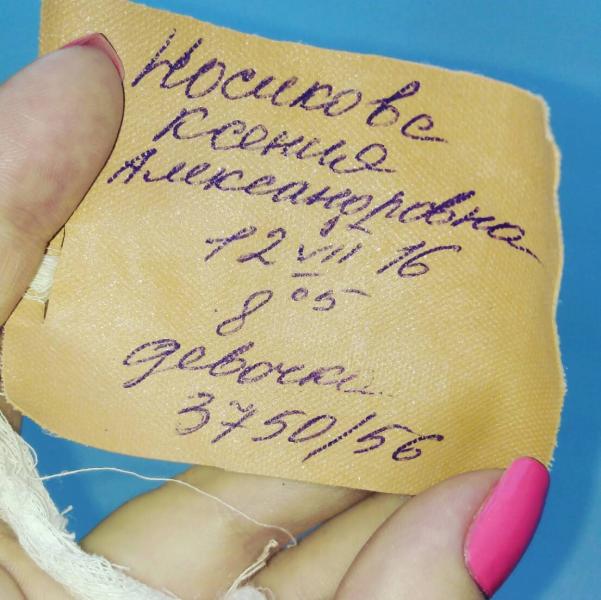 Носикова
Ксения
Александровна
12 VII 16
8 05
девочка
3750/56